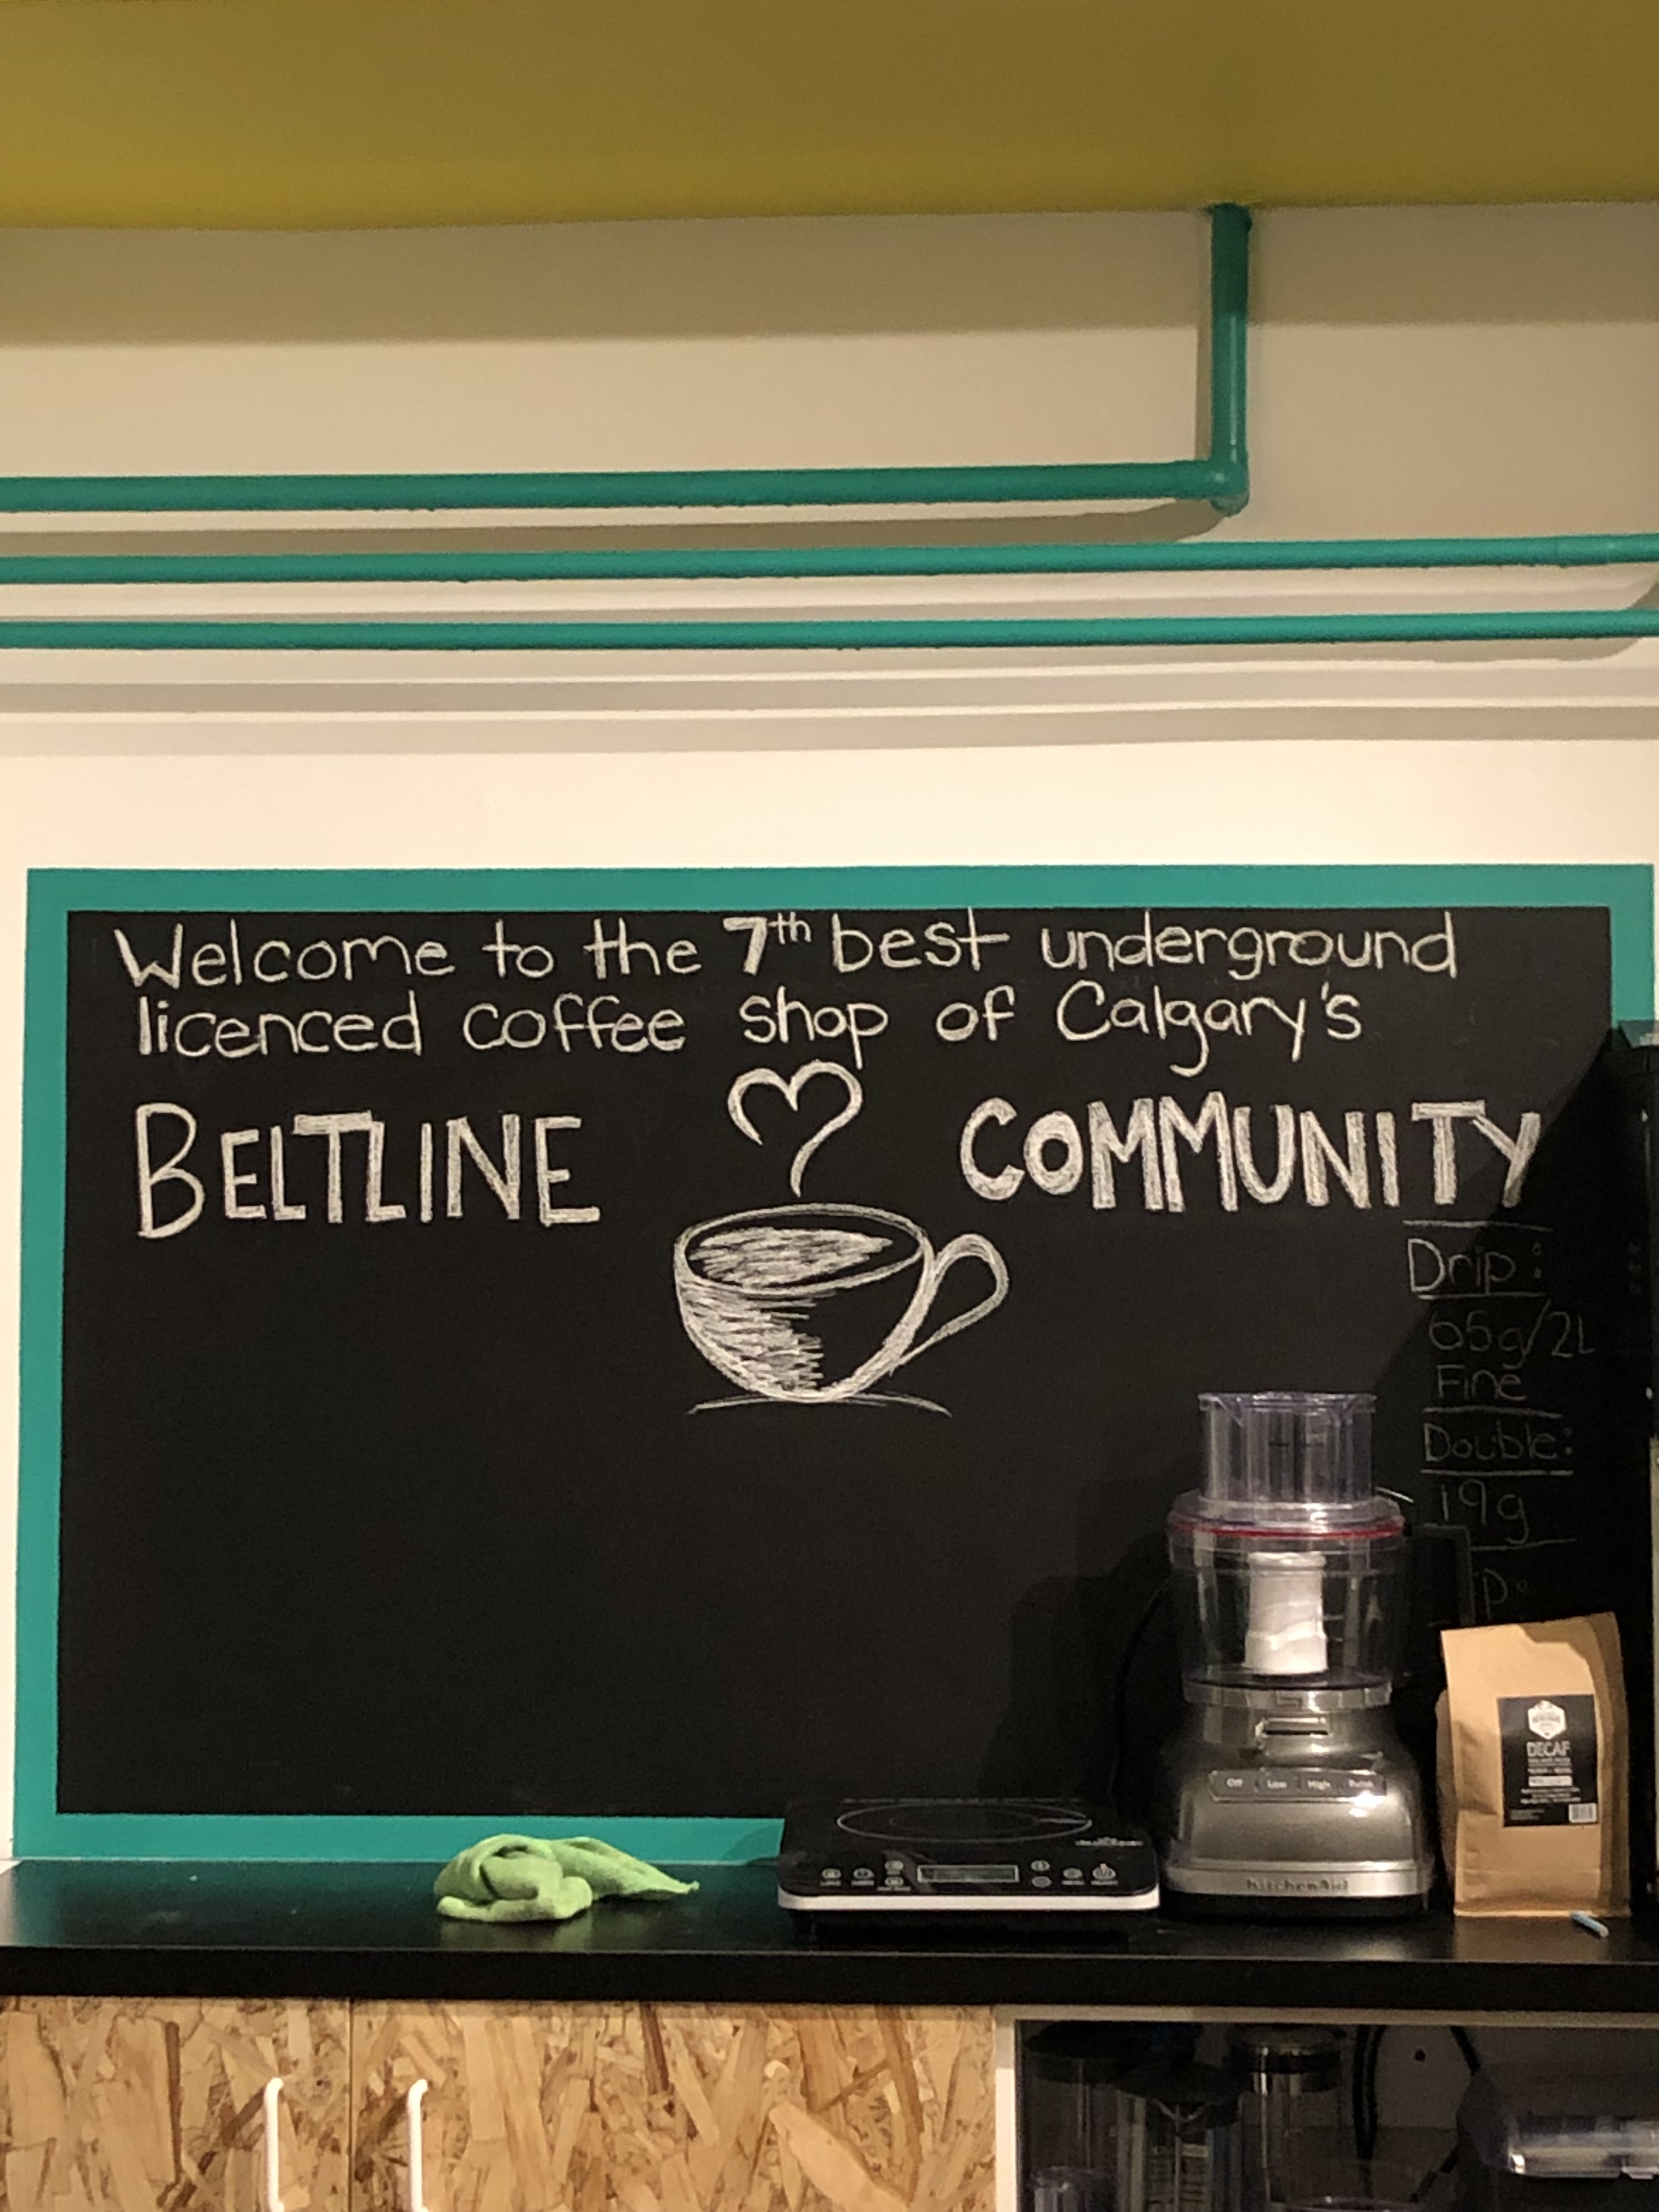 Welcome to the 7th best underground
licenced coffee shop of Calgary's
BELTLINE COMMUNITY
Drip:
65g/2L
Fine
Double:
19g
DECAF
Off Low High Pulse
KitchenAid